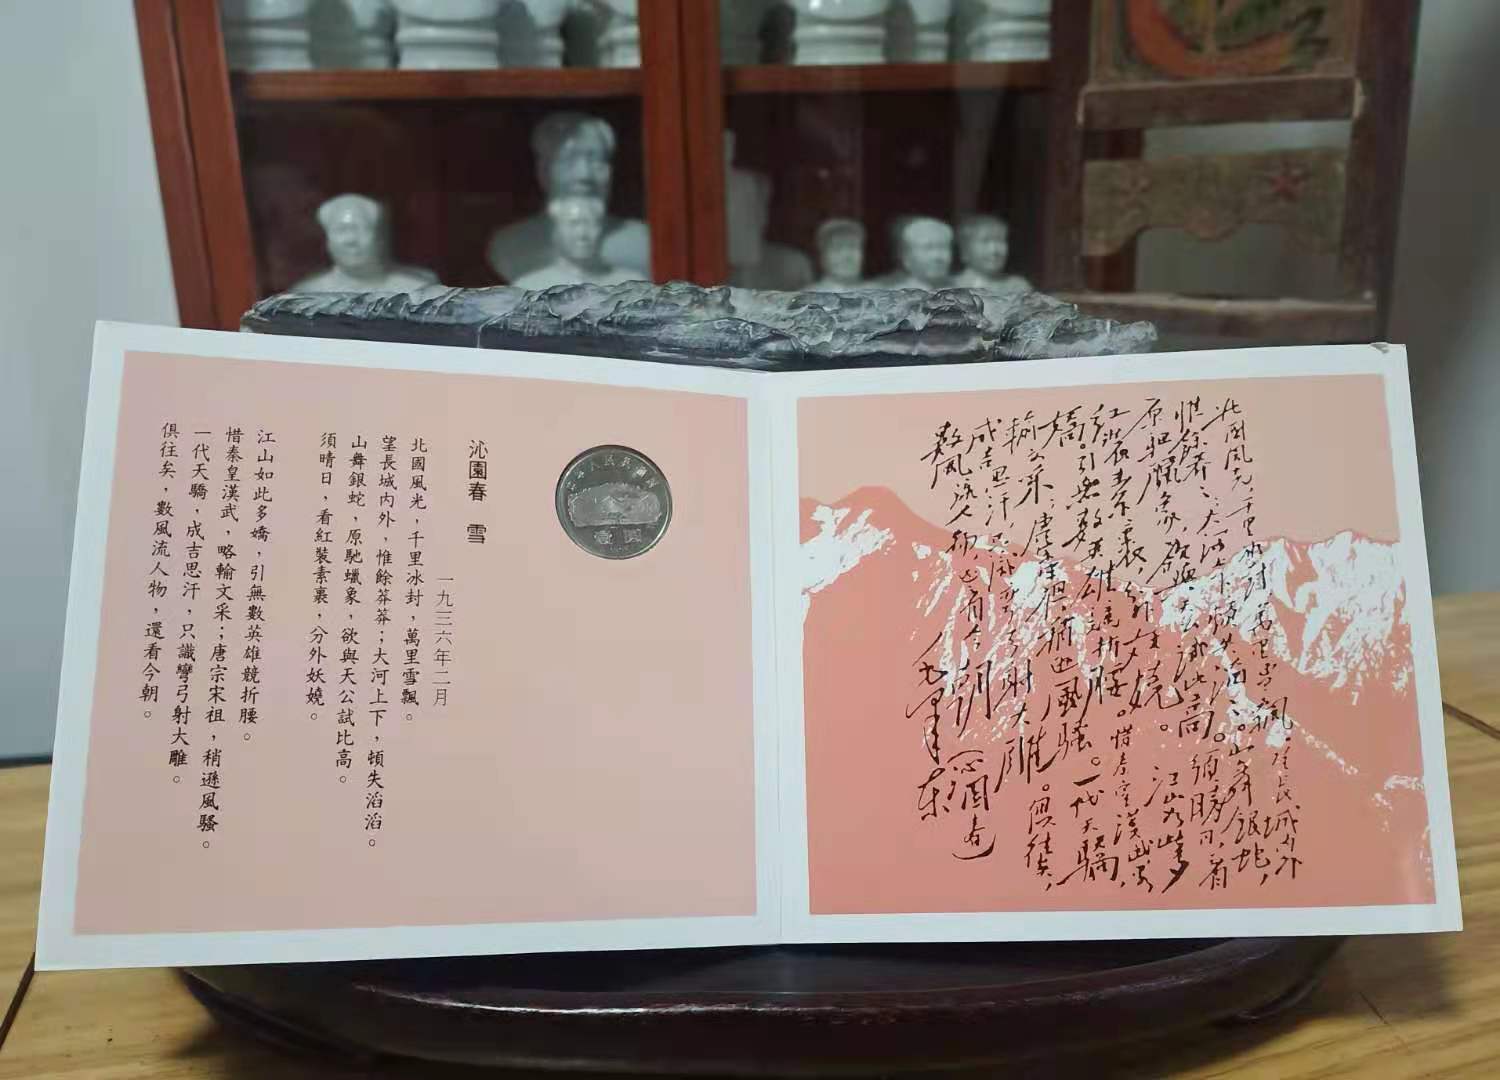 沁園春 雪
一九三六年二月
北國風光，千里冰封，萬里雪飄。
望長城內外，惟餘莽莽；大河上下，頓失滔滔。
山舞銀蛇，原馳蠟象，欲與天公試比高。
須晴日，看紅裝素裹，分外妖嬈。
江山如此多嬌，引無數英雄競折腰。
惜秦皇漢武，略輸文采；唐宗宋祖，稍遜風騷。
一代天驕，成吉思汗，只識彎弓射大雕。
俱往矣，數風流人物，還看今朝。
中华人民共和国
壹圆
北國風光，千里冰封，萬里雪飄。望長城內外
惟餘莽莽；大河上下，頓失滔滔。山舞銀蛇，
原馳臘象，欲與天公試比高。須晴日，看
紅裝素裹，分外妖嬈。江山如此多
嬌。引無數英雄競折腰。惜秦皇漢武，略
輸文采；唐宗宋祖，稍遜風騷。一代天驕，
成吉思汗，只識彎弓射大雕。俱往矣，
數風流人物，還看今朝
毛澤東（沁園春）